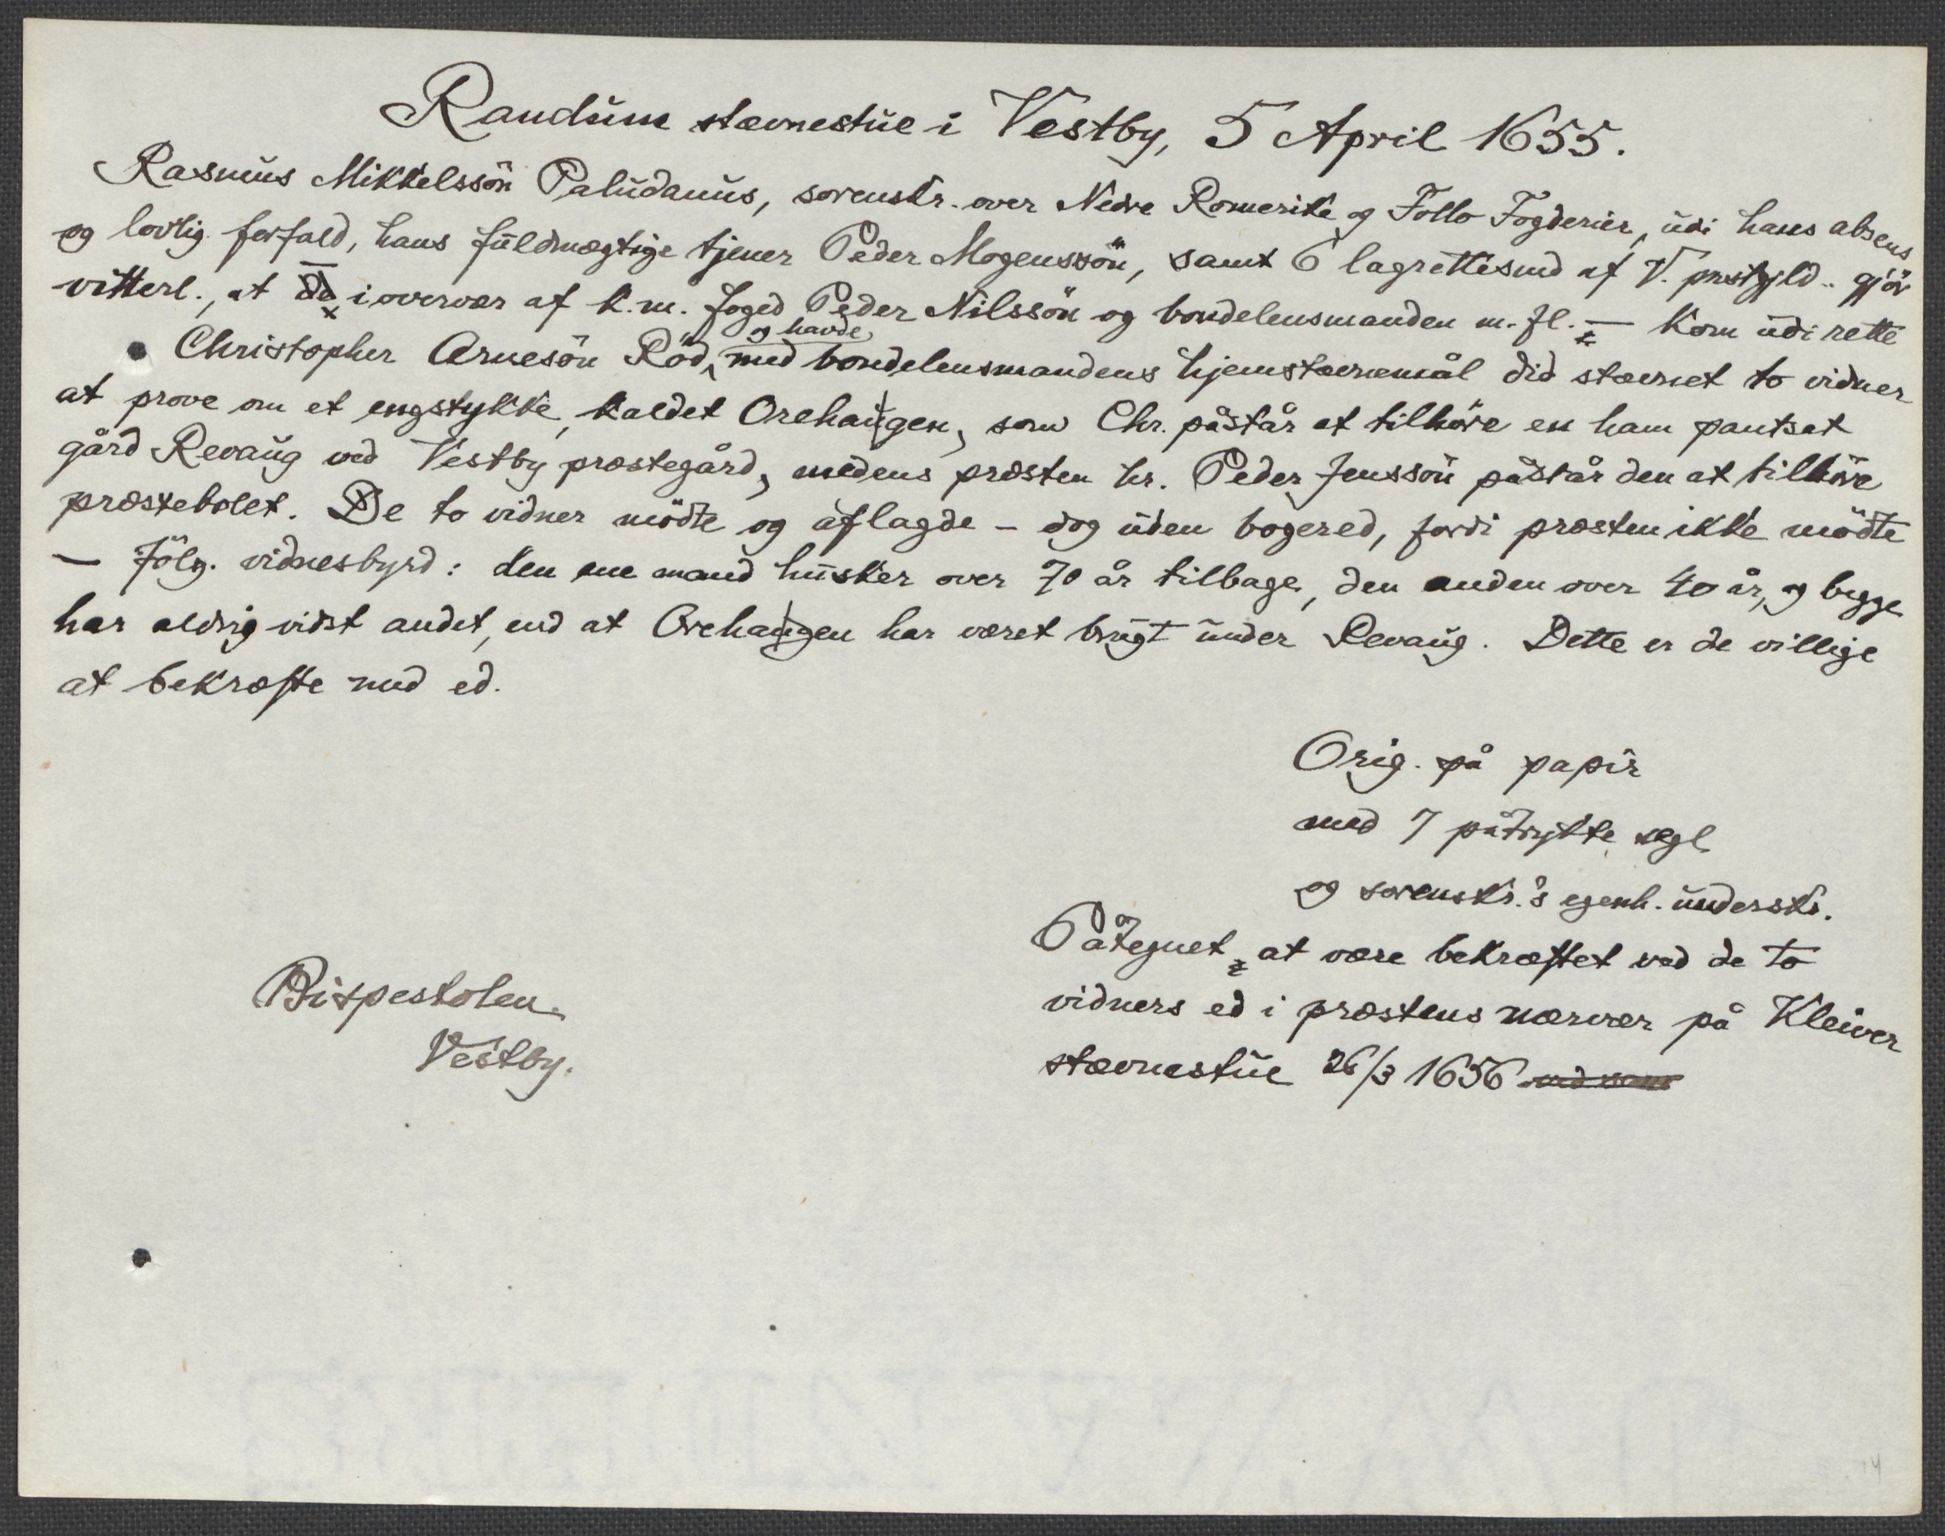 Randum stævnestue i Vestby, 5 April 1655.
Rasmus Mikkelssön Paludanus, sorenskr. over Nedre Romerike og Follo Fogderier, udi hans absens
og lovlig forfald, hans fuldmægtige tjener Peder Mogenssön, samt 6 lagrettesmd af V. prestgjld. gjör
vitterl., at da i overvær af k. m. foged Peder Nilssön og bondelensmanden m. fl. – kom udi rette
Christopher Arnesön Röd, og havde med bondelensmandens hjemstævnemål did stævnet to vidner
at prove om et engstykke, kaldet Orehaugen, som Chr. påstår at tilhöre en ham pantsat
gård Revaug ved Vestby præstegård, medens præsten hr. Peder Jenssön påstår den at tilhöre
præstebolet. De to vidner mödte og aflagde – dog uden bogered, fordi præsten ikke mödte
– fölg. vidnesbyrd: den ene mand husker over 70 år tilbage, den anden over 40 år, og begge
har aldrig vidst andet, end at Orehaugen har været brugt under Revaug. Dette er de villige
at bekræfte med ed.
Orig. på papir
med 7 påtrykte segl
og sorenskr.'s egenh. underskr.
Påtegnet at være bekræftet ved de to
vidners ed i præstens nærvær på Kleiver
stævnestue 26/3 1656
Bispestolen.
Vestby.
14